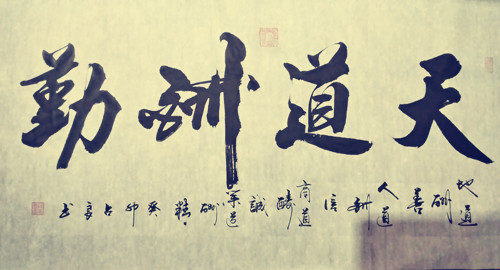 天道酬勤
地道酬善人道酬信商道酬誠業道酬精癸卯书